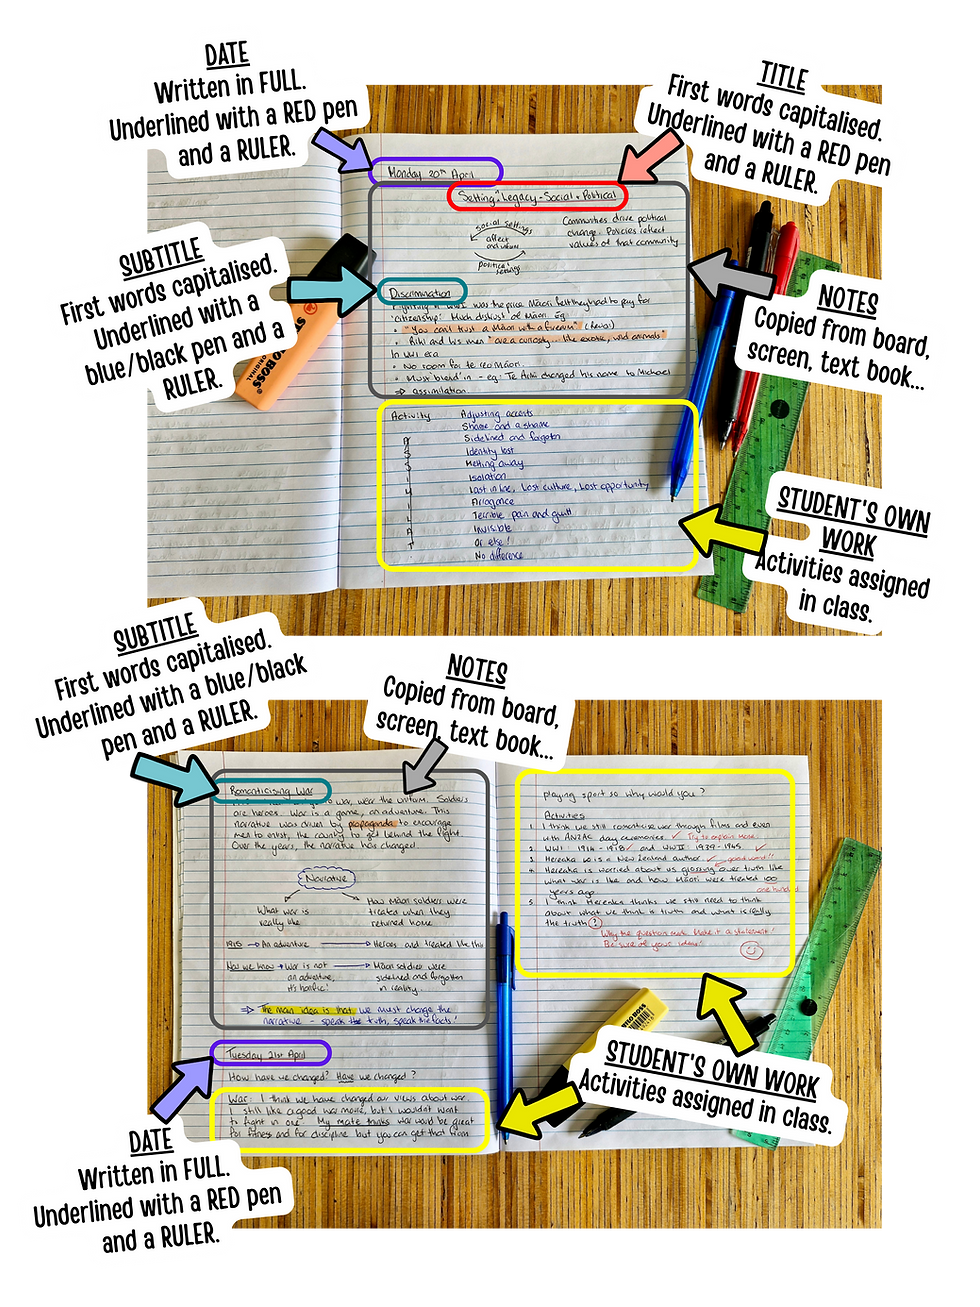 DATE
Written in FULL.
Underlined with a RED pen
and a RULER.
TITLE
First words capitalised.
Underlined with a RED pen
and a RULER.
SUBTITLE
First words capitalised.
Underlined with a
blue/black pen and a
RULER.
NOTES
Copied from board,
screen, text book...
STUDENT'S OWN
WORK
Activities assigned
in class.
Monday 20th April
Setting, Legacy - Social + Political
social settings
affect
and inform
political
settings
Communities drive political
change. Policies reflect
values of that community
Discrimination
WWI was the price Māori felt they had to pay for
'citizenship'. Much distrust of Māori. Eg:
• "You can't trust a Māori with a firearm"
• Riki and his men "are a curiosity... like exotic, wild animals"
In WWI era
• No room for te reo Māori.
• Must 'blend' in - eg: Te Ariki changed his name to Michael
⇒ assimilation.
Activity
Adjusting accents
Shame and a shame
Sidelined and forgotten
Identity lost
Melting away
Isolation
Last in line, Lost culture, Lost opportunity
Arrogance
Terrible pain and guilt
Invisible
Or else!
No difference
A
S
S
I
M
I
L
A
T
STABILO BOSS
ORIGINAL
SUBTITLE
First words capitalised.
Underlined with a blue/black
pen and a RULER.
NOTES
Copied from board,
screen, text book...
Romanticising War
to war, wear the uniform. Soldiers
are heroes. War is a game, an adventure. This
narrative was driven by propaganda to encourage
men to enlist, the country to get behind the fight.
Over the years, the narrative has changed
Narrative
What war is
really like
How Māori soldiers were
treated when they
returned home
1915 → An adventure → Heroes and treated like this
Now we know → War is not
an adventure,
it's horrific!
→ Māori soldiers were
sidelined and forgotten
in reality.
⇒ The main idea is that we must change the
narrative - speak the truth, speak the facts!
Tuesday 21st April
How have we changed? Have we changed?
War: I think we have changed our views about war.
I still like a good war movie, but I wouldn't want
to fight in one. My mate thinks war would be great
for fitness and for discipline but you can get that from
playing sport so why would you?
Activities
1. I think we still romanticise war through films and even
with ANZAC day ceremonies. ✓ Try to explain more!
2. WWI 1914 - 1918 ✓ and WWII 1939-1945 ✓
3. Hereaka is a New Zealand author ✓ good word!!
4. Hereaka is worried about us glossing over truth like
what war is like and how Māori were treated 100
years ago. one hundred
5. I think Hereaka thinks we still need to think
about what we think is truth and what is really
the truth?
Why the question mark. Make it a statement!
Be sure of your ideas!
BOSS
STUDENT'S OWN WORK
Activities assigned in class.
DATE
Written in FULL.
Underlined with a RED pen
and a RULER.